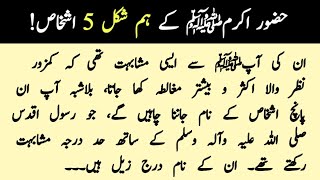 حضور اکرمﷺ کے ہم شکل 5 اشخاص!
ان کی آپﷺ سے ایسی مشابہت تھی کہ کمزور
نظر والا اکثر و بیشتر مغالطہ کھا جاتا، بلاشبہ آپ ان
پانچ اشخاص کے نام جاننا چاہیں گے، جو رسول اقدس
صلی اللہ علیہ وآلہ وسلم کے ساتھ حد درجہ مشابہت
رکھتے تھے۔ ان کے نام درج زیل ہیں۔۔۔